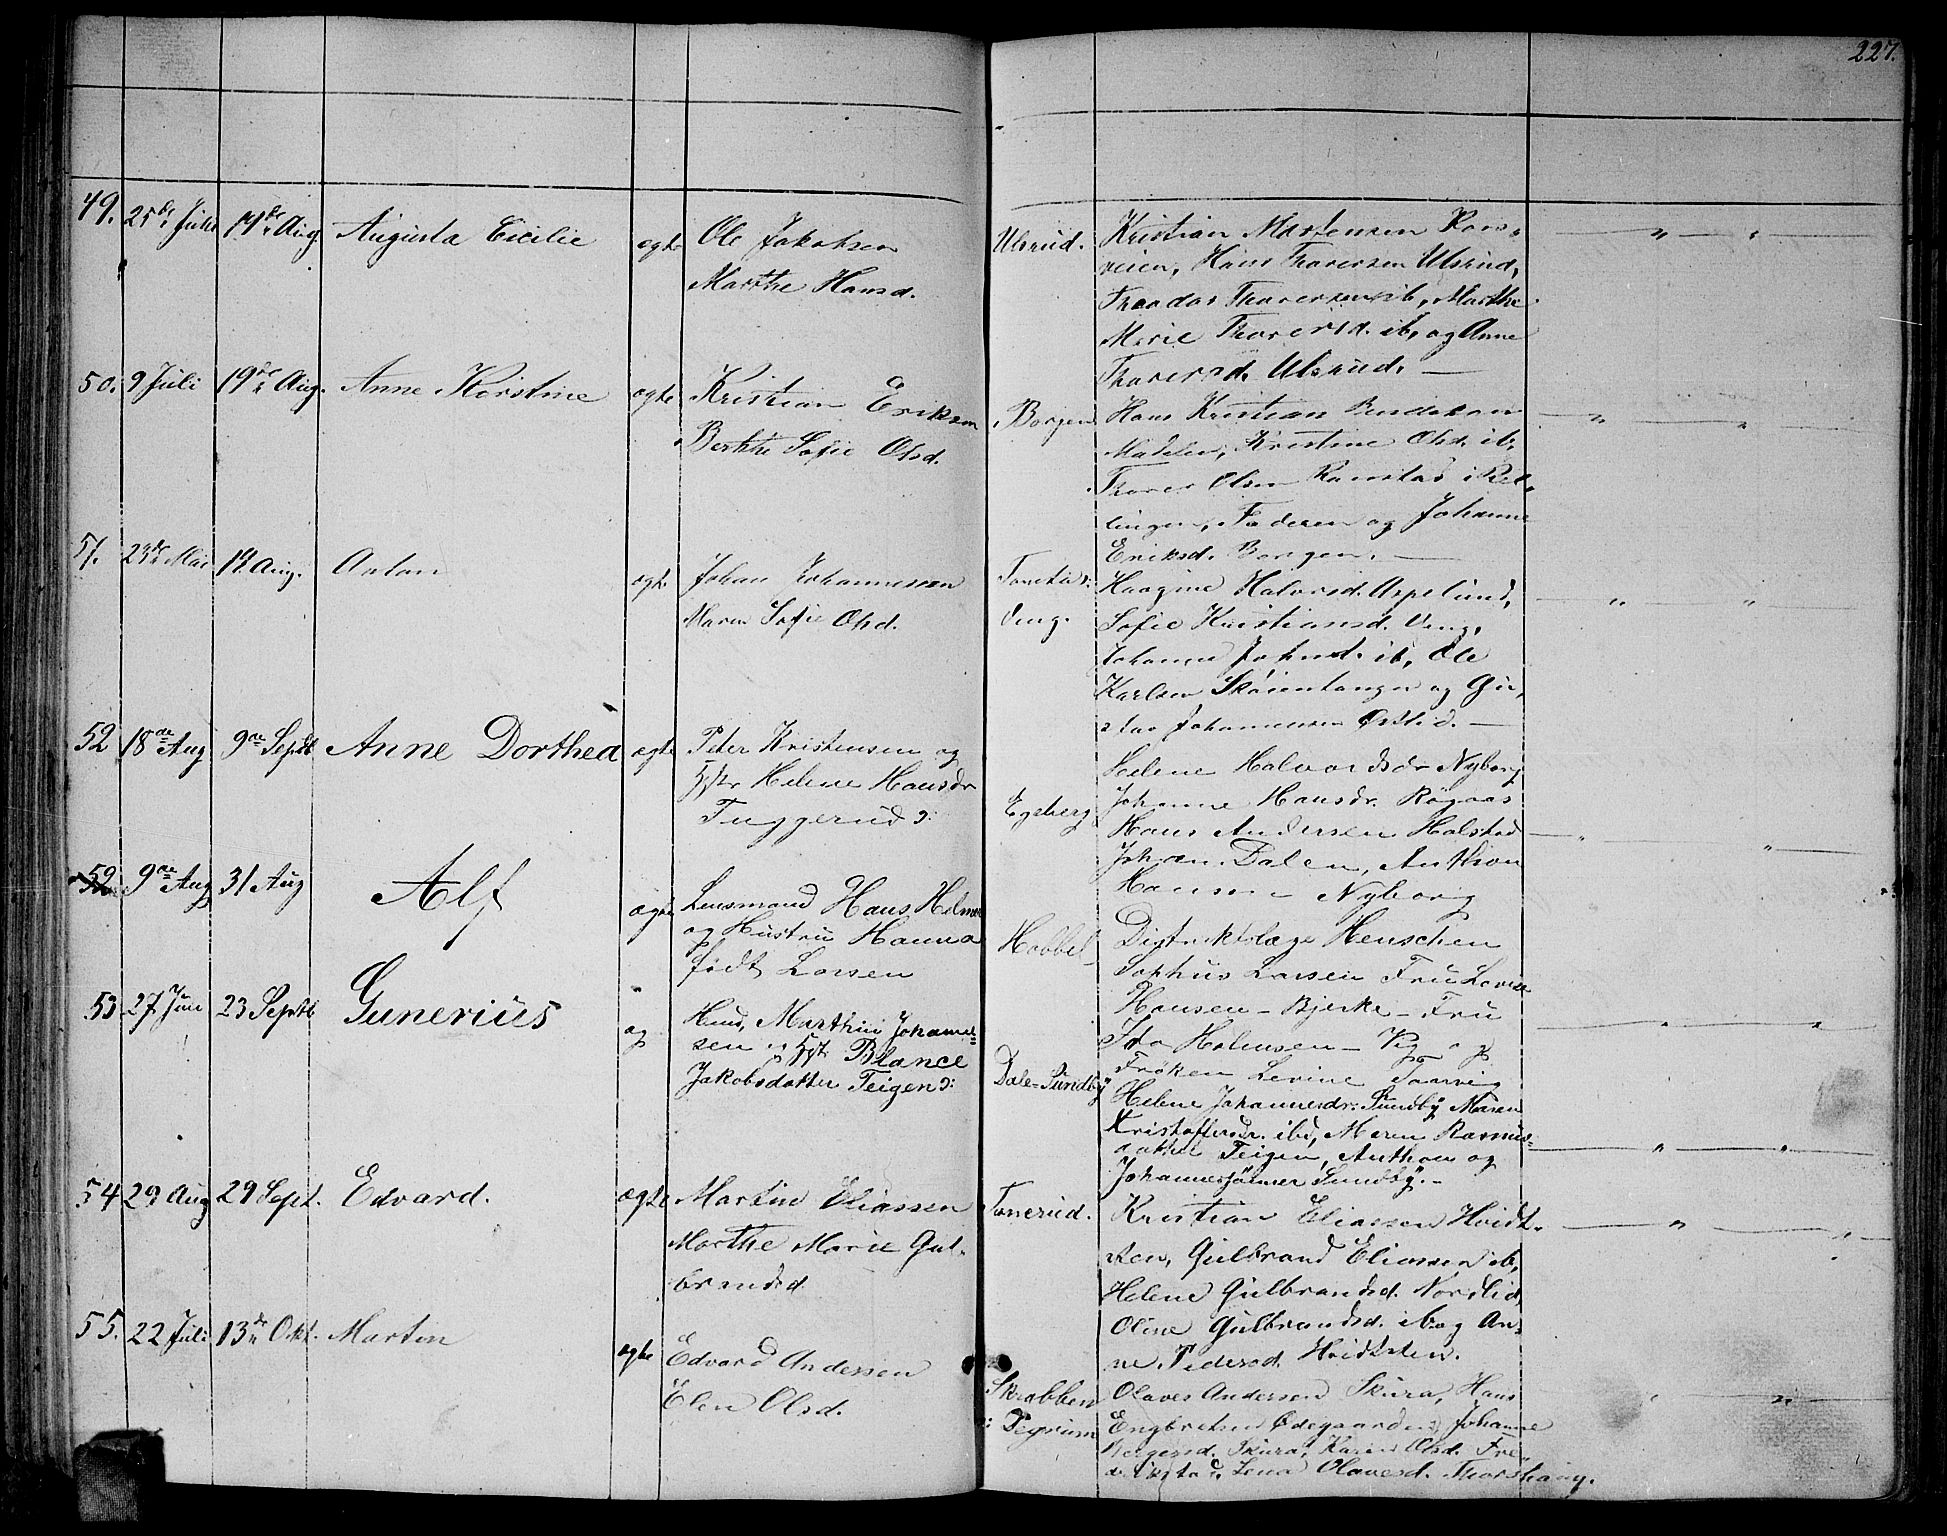 227.
49. 25de Juli 19de Aug. Augusta Cicilie ægte Ole Jakobsen
Marthe Hansd.
Ulsrud.
Kristian Mortensen Roos-
veien, Hans Thoresen Ulsrud,
Thorersen ib, Marthe
Marie Thorersd. ib, og Anne
Thorersd. Ulsrud. —
50. 9 Juli 19de Aug. Anne Kristine ægte Kristian Eriksen
Berthe Sofie Olsd.
Borgen
Hans Kristian
Kristine Olsd. ib,
Thorer Olsen Ramstad i Rel-
lingen, Faderen og Johanne
Eriksd. Borgen. —
51. 23de Mai 19. Aug. Anton ægte Johan Johannessen
Maren Sofie Olsd.
Veng.
Haagine Halvorsd. Aspelund,
Sofie Kristiansd. Veng,
Johanne Johnsd. ib, Ole
Karlsen Skøientangen og Gu-
stav Johannessen —
52 18de Aug 9de Septb Anne Dorthea ægte Peter Kristensen og
Hstr Helene Hansdr
Tuggerud
Egeberg
Helene Halvordsdr Nyborg
Johanne Hansdr.
Hans Andersen Halstad
Johan Dalen, Anthon
Hansen Nyborg
52 9de Aug 31 Aug Alf ægte Lensmand Hans Holmse
og Hustru Hanna
født Larsen
Hobbel
Distriktslæge Henschen
Sophus Larsen Fru Lovise
Hansen - Bjerke - Fru
Ida Holmsen
Frøken Levine
53 27 Jun 23 Septb Gunerius Marthin Johanne-
sen Hst Blance
Jakobsdatter Teigen
Dale-Sundby
Helene Johannesdr. Sundby Maren
Kristoffersdr. ibd, Maren Rasmus-
datter Teigen, Anthon og
Johannes Sundby. —
54 29 Aug 29 Sept. Edvard. ægte Martin Eliassen
Marthe Marie Gul-
brandsd
Tonerud.
Kristian Eliassen Hvidt-
sten, Gulbrand Eliassen ib,
Helene Gulbrandsd. Nordlid,
Oline Gulbrandsd. ib. og An-
ne Pedersd. Hvidtsten.
55. 22 Juli 13de Okt. Martin ægte Edvard Andersen
Elen Olsd.
Skrabben
Olaves Andersen Skura, Hans
Engbretsen Ødegaarden, Johanne
Skura, Karen Olsd. Fre-
drikstad, Lena Olavesd. Thorshaug.